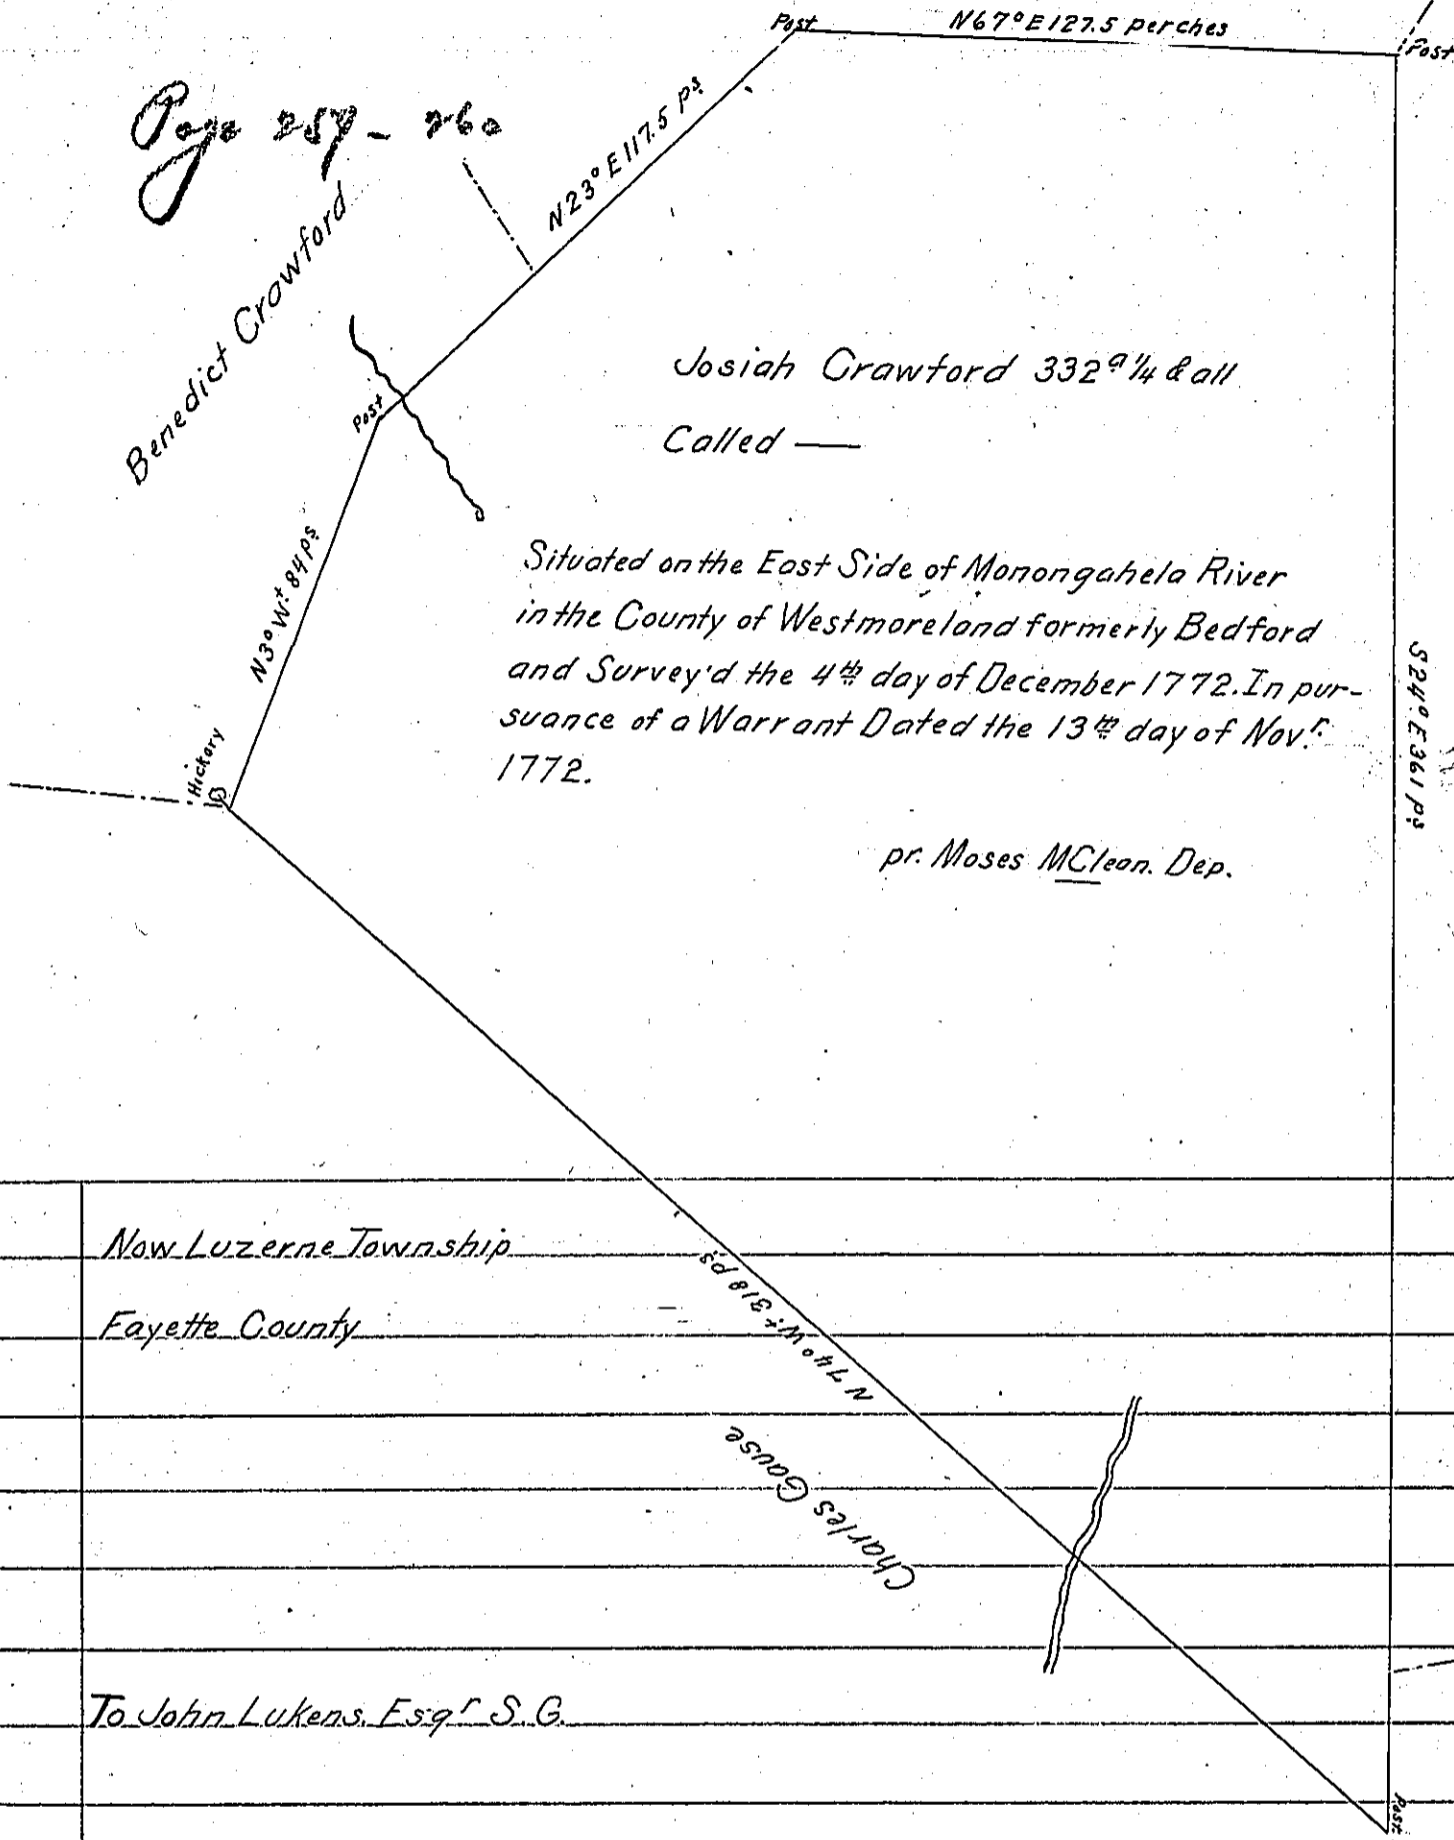 Post
N67°E127.5 perches
Post
Page 259 - 260
N23°E117.5 ps
Benedict Crawford
Post
Josiah Crawford 332a 1/4 & all
Called —
N3°Wt. 84ps
Situated on the East Side of Monongahela River
in the County of Westmoreland formerly Bedford
and Survey'd the 4th day of December 1772. In pur-
suance of a Warrant Dated the 13th day of Novr.
1772.
S24°E361ps
Hickory
pr. Moses MClean. Dep.
Now Luzerne Township
Fayette County
N74°Wt. 318ps
Charles Gause
To John Lukens. Esqr S.G.
Post